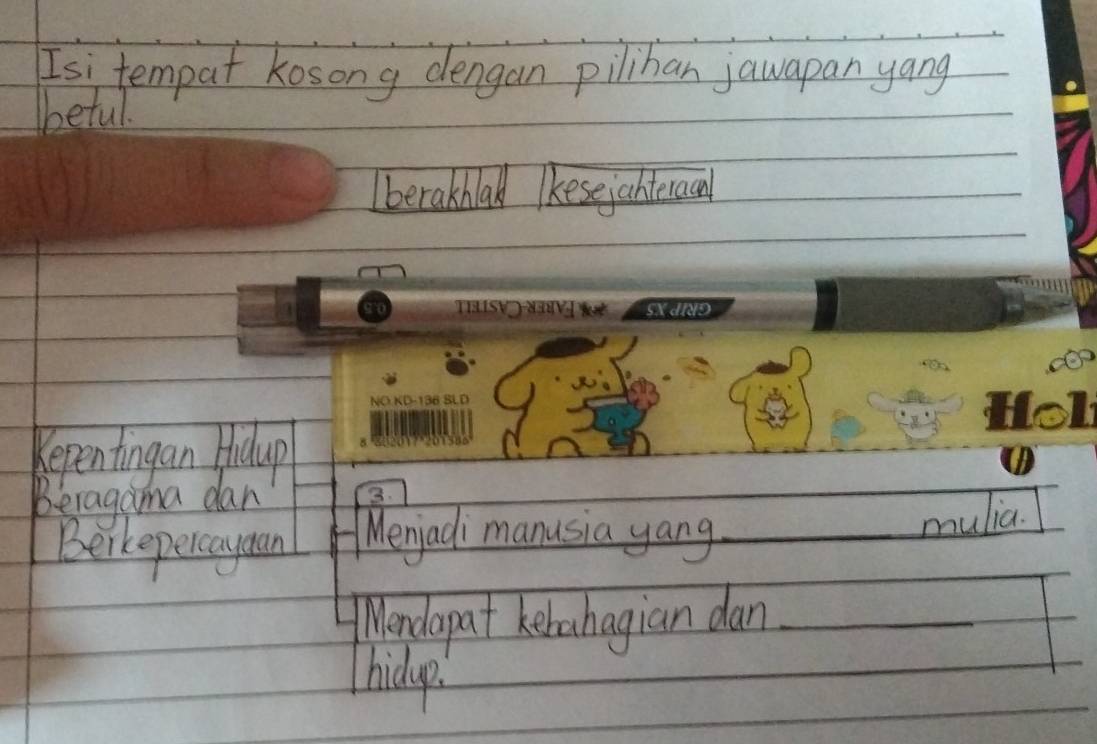 Isi tempat kosong dengan pilihan jawapan yang
betul.
berakhlak kesejahteraan
1
0.5 FABER-CASTELL GRIP X5
NO.KD-136 SLD
Hol
Kepentingan Hidup
Beragama dan
Berkepercayaan
3.
Menjadi manusia yang ________ mulia.
Mendapat kebahagian dan ________
hidup.